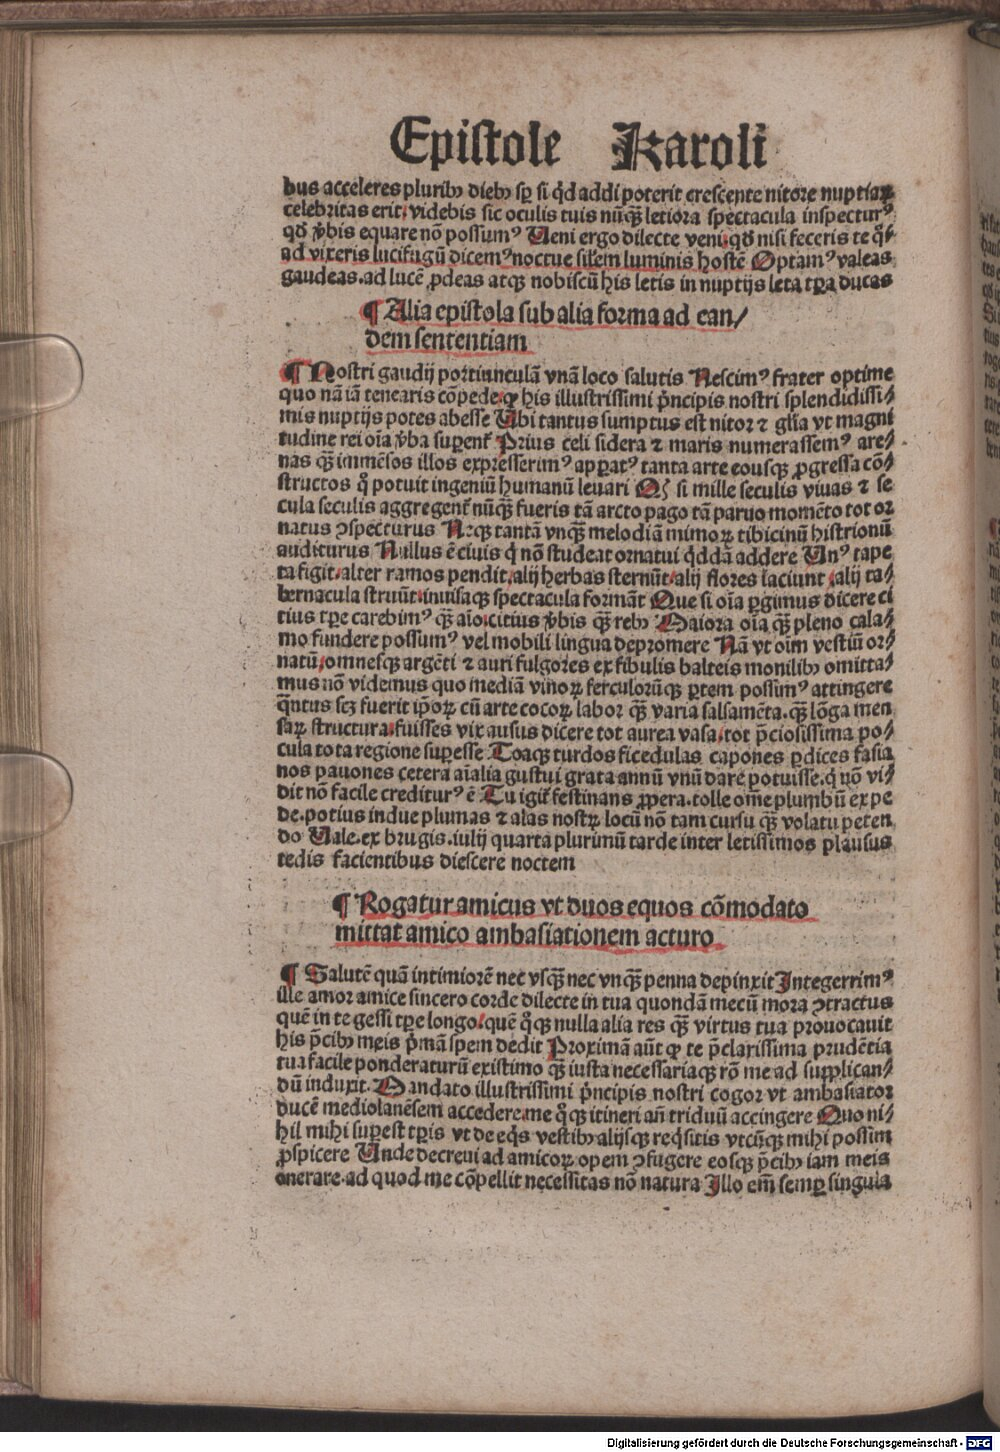 Epistole Karoli
bus acceleres pluribꝫ diebꝫ sꝑ si qͥd addi poterit crescente nitore nuptiaꝝ
celebritas erit. videbis sic oculis tuis nūqꝫ letiora spectacula inspecturꝰ
qď v̓bis equare nō possumꝰ Veni ergo dilecte veni. qď nisi feceris te qͦ/
ad vixeris lucifugū dicemꝰ noctue silem luminis hostē Optamꝰ valeas
gaudeas. ad lucē ꝓdeas atqꝫ nobiscū his letis in nuptijs leta tꝑa ducas
¶ Alia epistola sub alia forma ad ean/
dem sententiam
¶ Nostri gaudij portiunculā vnā loco salutis Nescimꝰ frater optime
quo nā iā tenearis cōpede. ꝙ his illustrissimi pͥncipis nostri splendidissi/
mis nuptijs potes abesse Vbi tantus sumptus est nitor ⁊ gl̄ia vt magni
tudine rei oīa v̓ba suꝑent̓ Prius celi sidera ⁊ maris numerassemꝰ are/
nas qꝫ immēsos illos expresserimꝰ apꝑatꝰ tanta arte eousqꝫ ꝓgressa cō/
structos qͦ potuit ingeniū humanū leuari Qꝫ si mille seculis viuas ⁊ se
cula seculis aggregent̓ nūqꝫ fueris tā arcto pago tā paruo momēto tot or
natus ꝯspecturus Neqꝫ tantā vnqꝫ melodiā mimoꝝ tibicinū histrionū
auditurus Nullus ē ciuis qͥ nō studeat ornatui qͥddā addere Vnꝰ tape
ta figit. alter ramos pendit. alij herbas sternūt. alij flores iaciunt. alij ta/
bernacula struūt. inuisaqꝫ spectacula formāt Que si oīa ꝑgimus dicere ci
tius tꝑe carebimꝰ qꝫ aīo. citius v̓bis qꝫ rebꝫ Maiora oīa qꝫ pleno cala/
mo fundere possumꝰ vel mobili lingua depromere Nā vt oīm vestiū or/
natū. omnesqꝫ argēti ⁊ auri fulgores ex fibulis balteis monilibꝫ omitta/
mus nō videmus quo mediā vinoꝝ ferculorūqꝫ ꝑtem possimꝰ attingere
qͣntus scꝫ fuerit ip̄oꝝ cū arte cocoꝝ labor qꝫ varia salsamēta. qꝫ lōga men
saꝝ structura. fuisses vix ausus dicere tot aurea vasa. tot p̄ciosissima po/
cula tota regione suꝑesse Totqꝫ turdos ficedulas capones ꝑdices fasia
nos pauones cetera aīalia gustui grata annū vnū dare potuisse. qͥ nō vi/
dit nō facile crediturꝰ ē Tu igit̓ festinans ꝓpera. tolle om̄e plumbū ex pe
de. potius indue plumas ⁊ alas nostꝝ locū nō tam cursu qꝫ volatu peten
do Vale. ex brugis. iulij quarta plurimū tarde inter letissimos plausus
tedis facientibus diescere noctem
¶ Rogatur amicus vt duos equos cōmodato
mittat amico ambasiationem acturo
¶ Salutē quā intimiorē nec vsqꝫ nec vnqꝫ penna depinxit Integerrimꝰ
ille amor amice sincero corde dilecte in tua quondā mecū mora ꝯtractus
quē in te gessi tꝑe longo. quē qͦqꝫ nulla alia res qꝫ virtus tua prouocauit
his p̄cibꝫ meis pͥmā spem dedit Proximā aūt ꝙ te p̄clarissima prudētia
tua facile ponderaturū existimo qꝫ iusta necessariaqꝫ rō me ad supplican/
dū induxit. Mandato illustrissimi pͥncipis nostri cogor vt ambasiator
ducē mediolanēsem accedere. me qͦqꝫ itineri an̄ triduū accingere Quo ni/
hil mihi suꝑest tꝑis vt de eqͥs vestibꝫ alijsqꝫ reqͥsitis vtcūqꝫ mihi possim
ꝓspicere Vnde decreui ad amicoꝝ opem ꝯfugere eosqꝫ p̄cibꝫ iam meis
onerare. ad quod me cōpellit necessitas nō natura Illo em̄ semꝑ singula
Digitalisierung gefördert durch die Deutsche Forschungsgemeinschaft - DFG